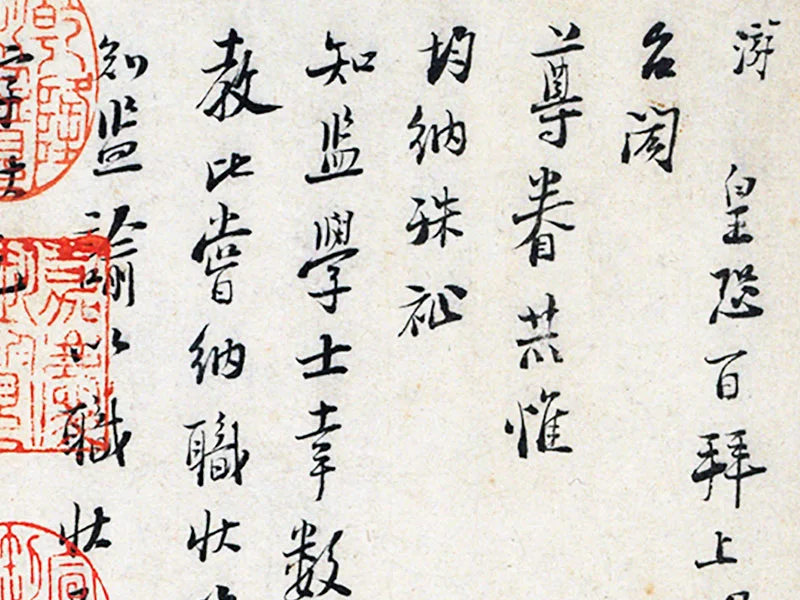 游 皇恐百拜上
台閤
尊眷恭惟
均納殊祉
知監學士幸数
教比嘗納職狀
知監諭以職狀